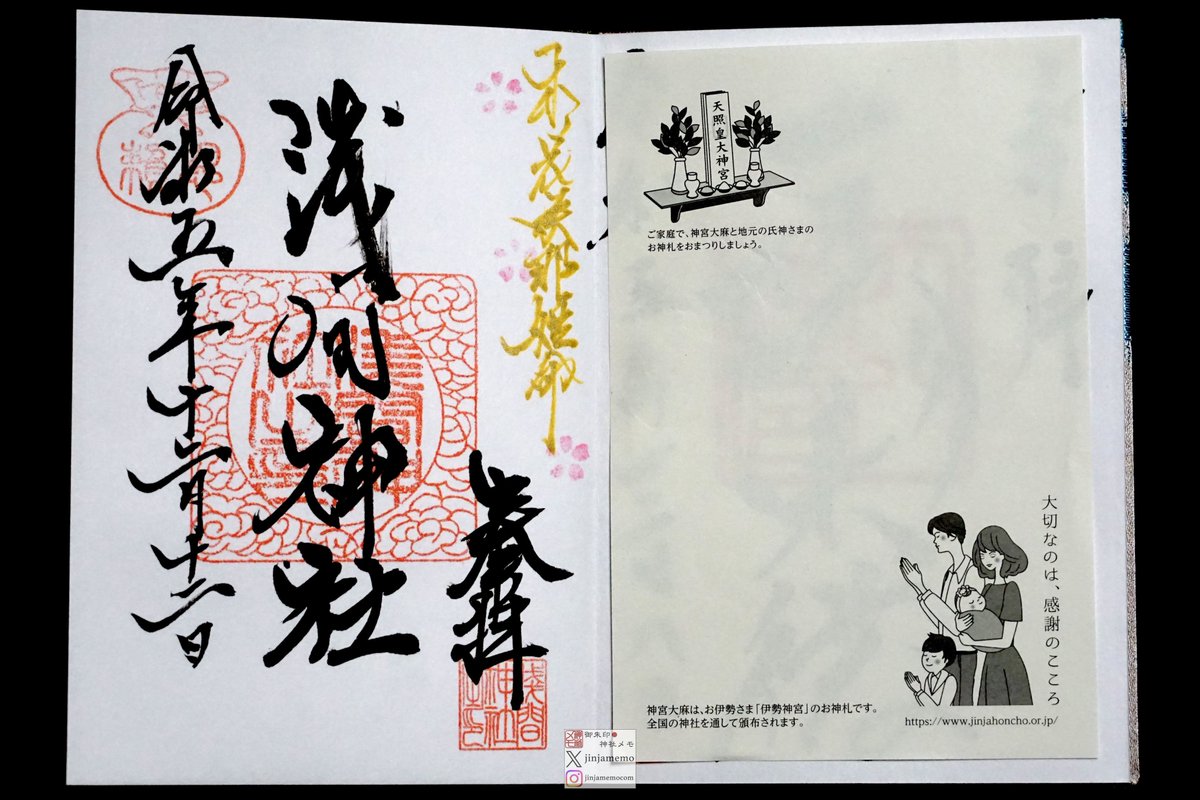 木花咲耶姫命
奉拝
浅間神社
令和五年十二月
天照皇大神宮
ご家庭で、神宮大麻と地元の氏神さまの
お神札をおまつりしましょう。
大切なのは、感謝のこころ
神宮大麻は、お伊勢さま「伊勢神宮」のお神札です。
全国の神社を通して頒布されます。
https://www.jinjahoncho.or.jp/
御朱印
神社メモ
jinjamemo
jinjamemocom